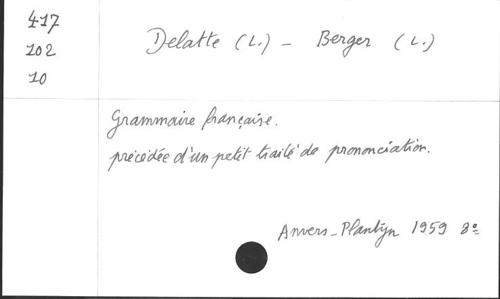 417
102
10
Delatte (L.) - Berger (L.)
Grammaire française.
précédée d'un petit traité de prononciation.
Anvers - Plantyn 1959 8º